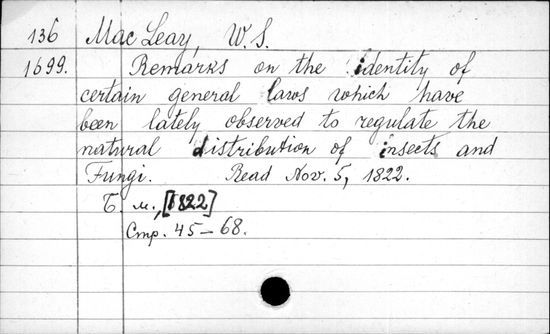 136 Mac Leay, W. S.
1699. Remarks on the identity of
certain general laws which have
been lately observed to regulate the
natural distribution of insects and
Fungi. Read Nov. 5, 1822.
Б. м., [1822]
Стр. 45-68.